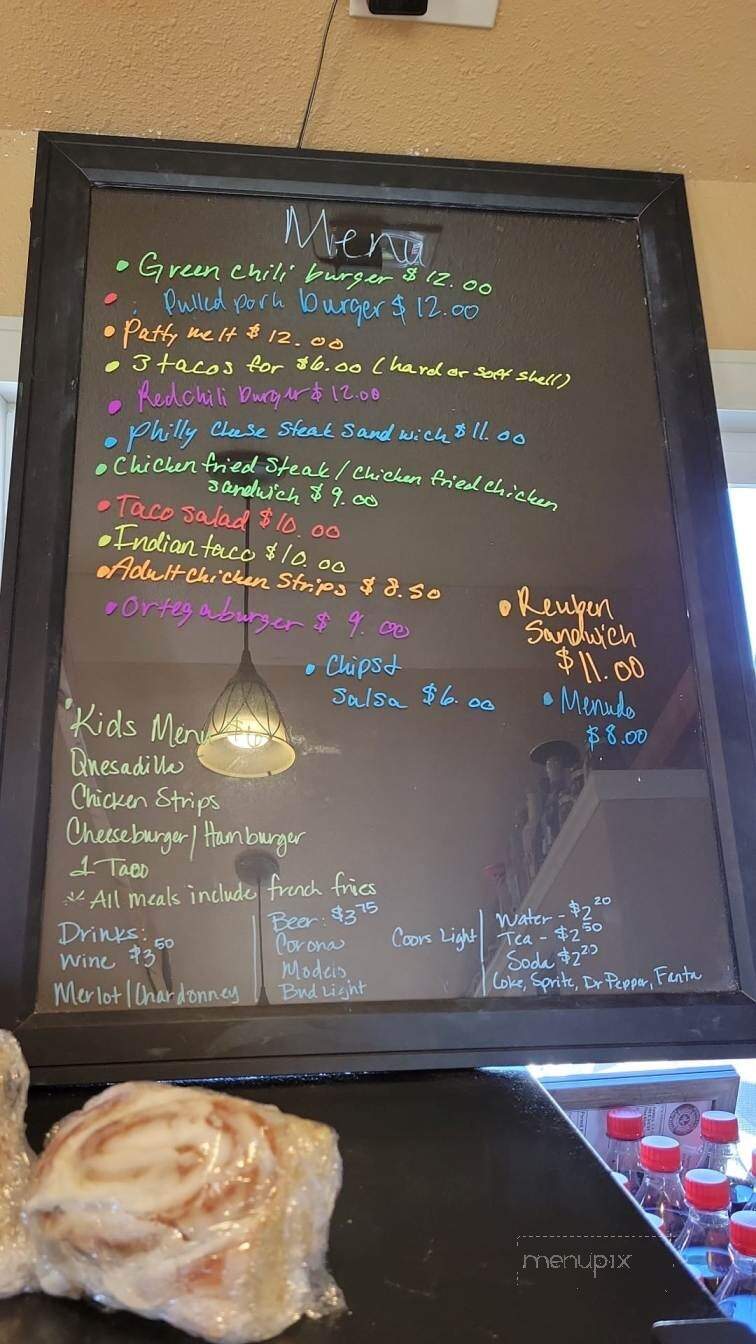 Menu
• Green chili burger $12.00
• : Pulled pork burger $12.00
• Patty melt $12.00
• 3 tacos for $6.00 (hard or soft shell)
• Red chili burger $12.00
• Philly chese steak sandwich $11.00
• Chicken fried steak / chicken fried chicken
sandwich $9.00
• Taco salad $10.00
• Indian taco $10.00
• Adult chicken strips $8.50
• Ortegaburger $9.00
• Reuben
Sandwich
$11.00
• Chips &
Salsa $6.00
• Menudo
$8.00
Kids Menu
Quesadilla
Chicken Strips
Cheeseburger / Hamburger
1 Taco
All meals include french fries
Drinks:
Wine $3.50
Merlot / Chardonney
Beer: $3.75
Corona
Coors Light
Modelo
Bud Light
Water - $2.20
Tea - $2.50
Soda $2.20
Coke, Sprite, Dr Pepper, Fanta
menupix